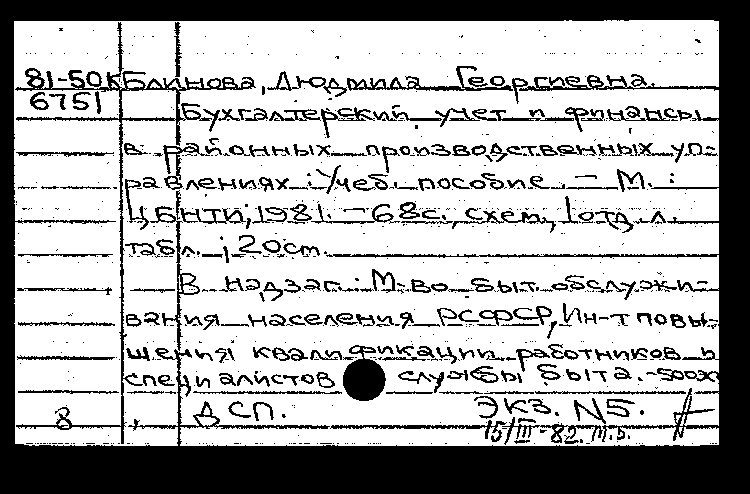 81-50К Блинова, Людмила Георгиевна.
6751 Бухгалтерский учет и финансы
в районных производственных уп-
равлениях : Учеб. пособие. – М. :
ЦБНТИ, 1981. – 68с., схем., 1 отд. л.
табл. ; 20 см.
В надзаг.: М-во быт. обслужи-
вания населения РСФСР, Ин-т повы-
шения квалификации работников и
специалистов службы быта. – 500
8 ДСП. Экз. N5.
15/III-82.